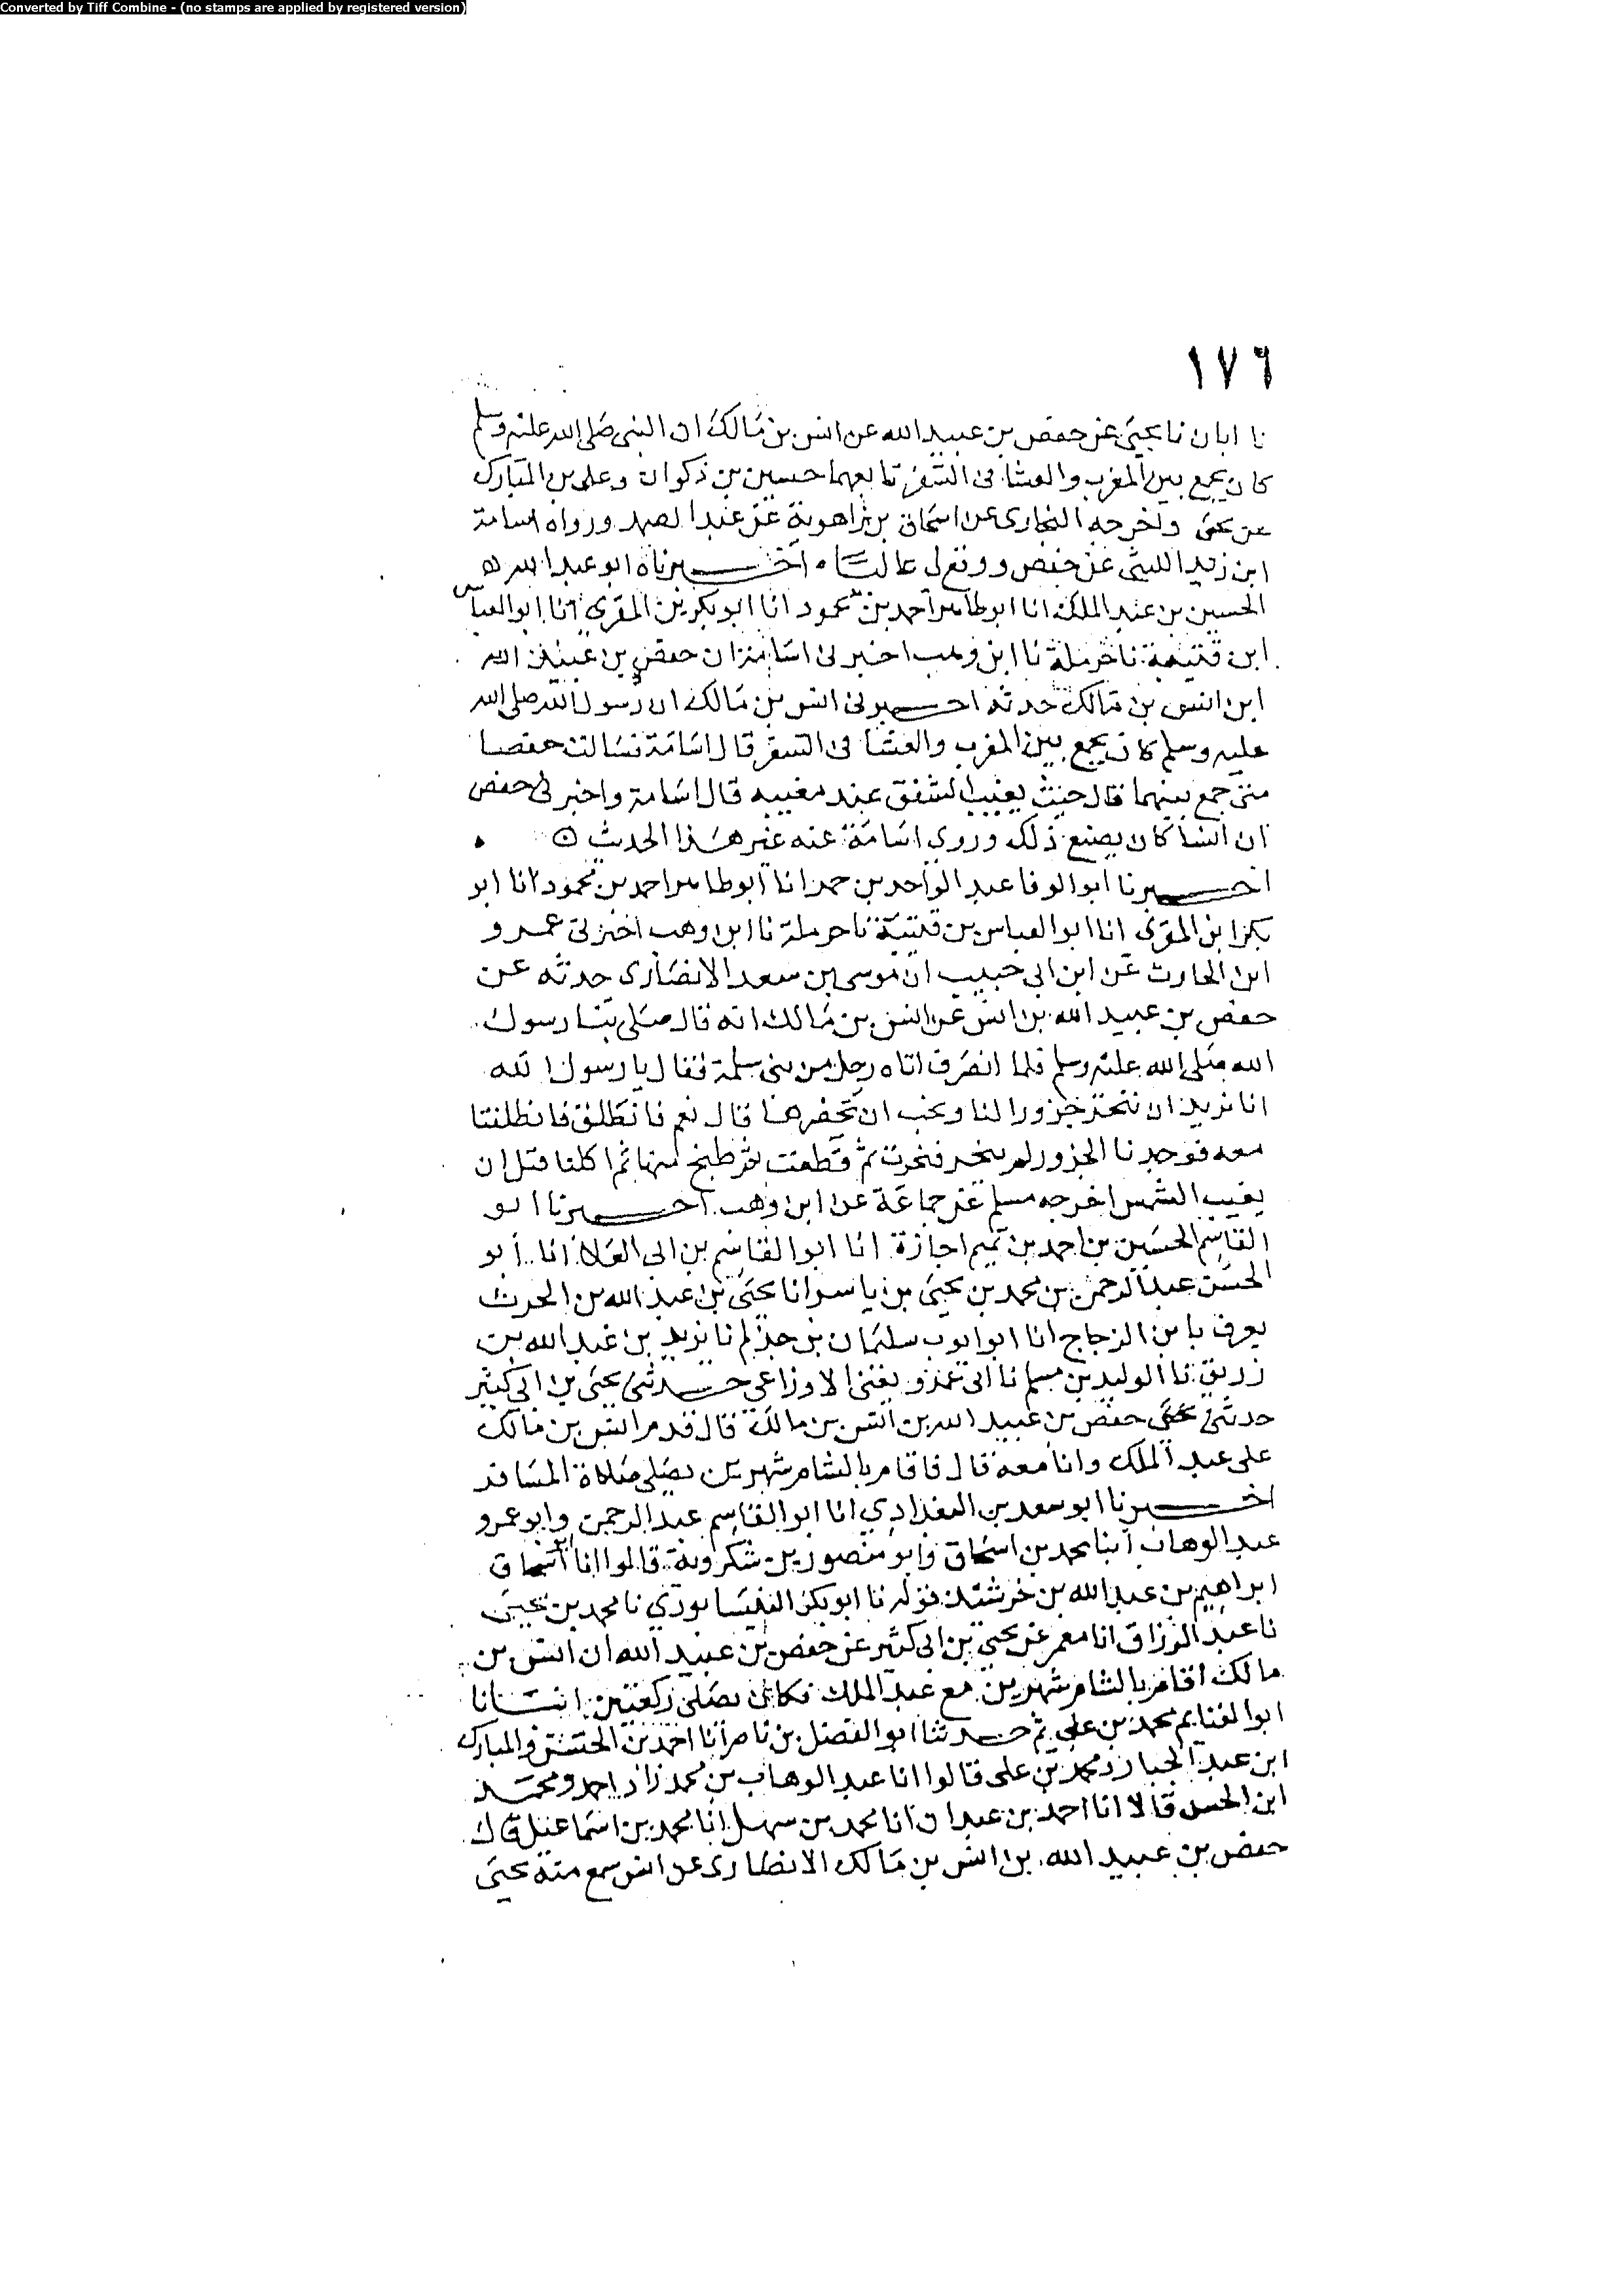 Converted by Tiff Combine - (no stamps are applied by registered version)
١٧٦
نا ابان نا يحيى عن حفص بن عبيد الله عن انس بن مالك ان النبى صلى الله عليه وسلم
كان يجمع بين المغرب والعشا فى السفر تابعهما حسين بن ذكوان وعلى بن المبارك
عن يحيى واخرجه البخارى عن اسحاق بن راهوية عن عبد الصمد ورواه اسامة
ابن زيد الليثى عن حفص ووقع لى عاليا اخبرناه ابو عبد الله
الحسين بن عبد الملك انا ابو طاهر احمد بن محمود انا ابو بكر بن المقرى انا ابو العباس
ابن قتيبة نا حرملة نا ابن وهب اخبرنى اسامة ان حفص بن عبيد الله
ابن انس بن مالك حدثه اخبرنى انس بن مالك ان رسول الله صلى الله
عليه وسلم كان يجمع بين المغرب والعشا فى السفر قال اسامة فسالت حفصا
متى جمع بينهما قال حيث يغيب الشفق عند مغيبه قال اسامة واخبرنى حفص
ان انسا كان يصنع ذلك وروى اسامة عنه غير هذا الحديث
اخبرنا ابو الوفا عبد الواحد بن حمد انا ابو طاهر احمد بن محمود انا ابو
بكر ابن المقرى انا ابو العباس بن قتيبة نا حرملة نا ابن وهب اخبرنى عمرو
ابن الحارث عن ابن ابى حبيب ان موسى بن سعد الانصارى حدثه عن
حفص بن عبيد الله بن انس عن انس بن مالك انه قال صلى بنا رسول
الله صلى الله عليه وسلم فلما انصرف اتاه رجل من بنى سلمة فقال يا رسول الله
انا نريد ان ننحر جزورا لنا ونحب ان تحضرها قال نعم فانطلق فانطلقنا
معه فوجدنا الجزور لم ينحر فنحرت ثم قطعت ثم طبخ منها ثم اكلنا قبل ان
يغيب الشمس اخرجه مسلم عن جماعة عن ابن وهب اخبرنا ابو
القاسم الحسين بن احمد بن تميم اجازة انا ابو القاسم بن ابى العلا انا ابو
الحسن عبد الرحمن بن محمد بن يحيى بن ياسر انا يحيى بن عبد الله بن الحرث
يعرف بابن الزجاج انا ابو ايوب سليمان بن حذلم نا يزيد بن عبد الله بن
زريق نا الوليد بن مسلم نا ابى عمرو يعنى الاوزاعي حدثنى يحيى بن ابى كثير
حدثنى حفص بن عبيد الله بن انس بن مالك قال قدم انس بن مالك
على عبد الملك وانا معه قال فاقام بالشام شهرين يصلى صلاة المسافر
اخبرنا ابو سعد بن البغدادي انا ابو القاسم عبد الرحمن وابو عمرو
عبد الوهاب ابنا محمد بن اسحاق وابو منصور بن شكروية قالوا انا اسحاق
ابراهيم بن عبد الله بن خرشيذ قوله نا ابو بكر النيسابوري نا محمد بن يحيى
نا عبد الرزاق انا معمر عن يحيى بن ابى كثير عن حفص بن عبيد الله ان انس بن
مالك اقام بالشام شهرين مع عبد الملك فكان يصلى ركعتين انبانا
ابو الغنايم محمد بن على ثم حدثنا ابو الفضل بن ناصر انا احمد بن الحسن والمبارك
ابن عبد الجبار ومحمد بن على قالوا انا عبد الوهاب بن محمد زاد احمد ومحمد
ابن الحسن قالا انا احمد بن عبدان انا محمد بن سهل انا محمد بن اسماعيل قال
حفص بن عبيد الله بن انس بن مالك الانصارى عن انس سمع منه يحيى